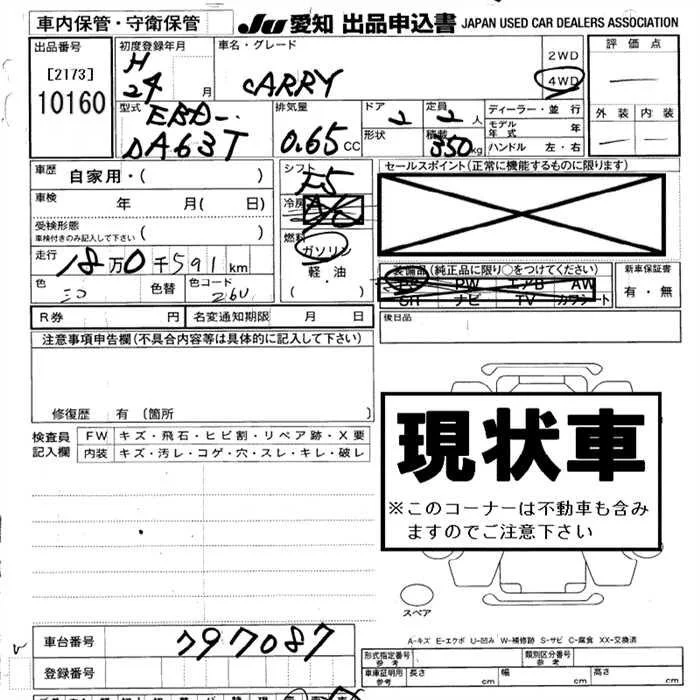 車内保管・守衛保管
JU 愛知 出品申込書 JAPAN USED CAR DEALERS ASSOCIATION
出品番号
[2173]
10160
初度登録年月
H
24 月
車名・グレード
CARRY
2WD
4WD
評価点
外装 内装
型式
EBD-
DA63T
排気量
0.65 CC
ドア 2
形状
定員 2 人
積載 350 kg
ディーラー・並行
モデル年式 年
ハンドル 左・右
車歴
自家用・( )
車検 年 月( 日)
受検形態
車検付きのみ記入して下さい ( )
走行 18万0千591km
色 色替 色コード 26U
シフト F5
冷房
燃料
ガソリン
軽・油
( ・ )
セールスポイント(正常に機能するものに限ります)
装備品(純正品に限り○をつけてください)
PS PW エアB AW
SR ナビ TV カワシート
新車保証書
有・無
R券 円 名変通知期限 月 日
後日品
注意事項申告欄(不具合内容等は具体的に記入して下さい)
修復歴 有 〔箇所
検査員
記入欄
FW キズ・飛石・ヒビ割・リペア跡・X要
内装 キズ・汚レ・コゲ・穴・スレ・キレ・破レ
現状車
※このコーナーは不動車も含み
ますのでご注意下さい
スペア
A-キズ E-エクボ U-凹み W-補修跡 S-サビ C-腐食 XX-交換済
車台番号 797087
登録番号
形式指定番号
参考
類別区分番号
参考
車庫証明用
参考
長さ cm 幅 cm 高さ cm